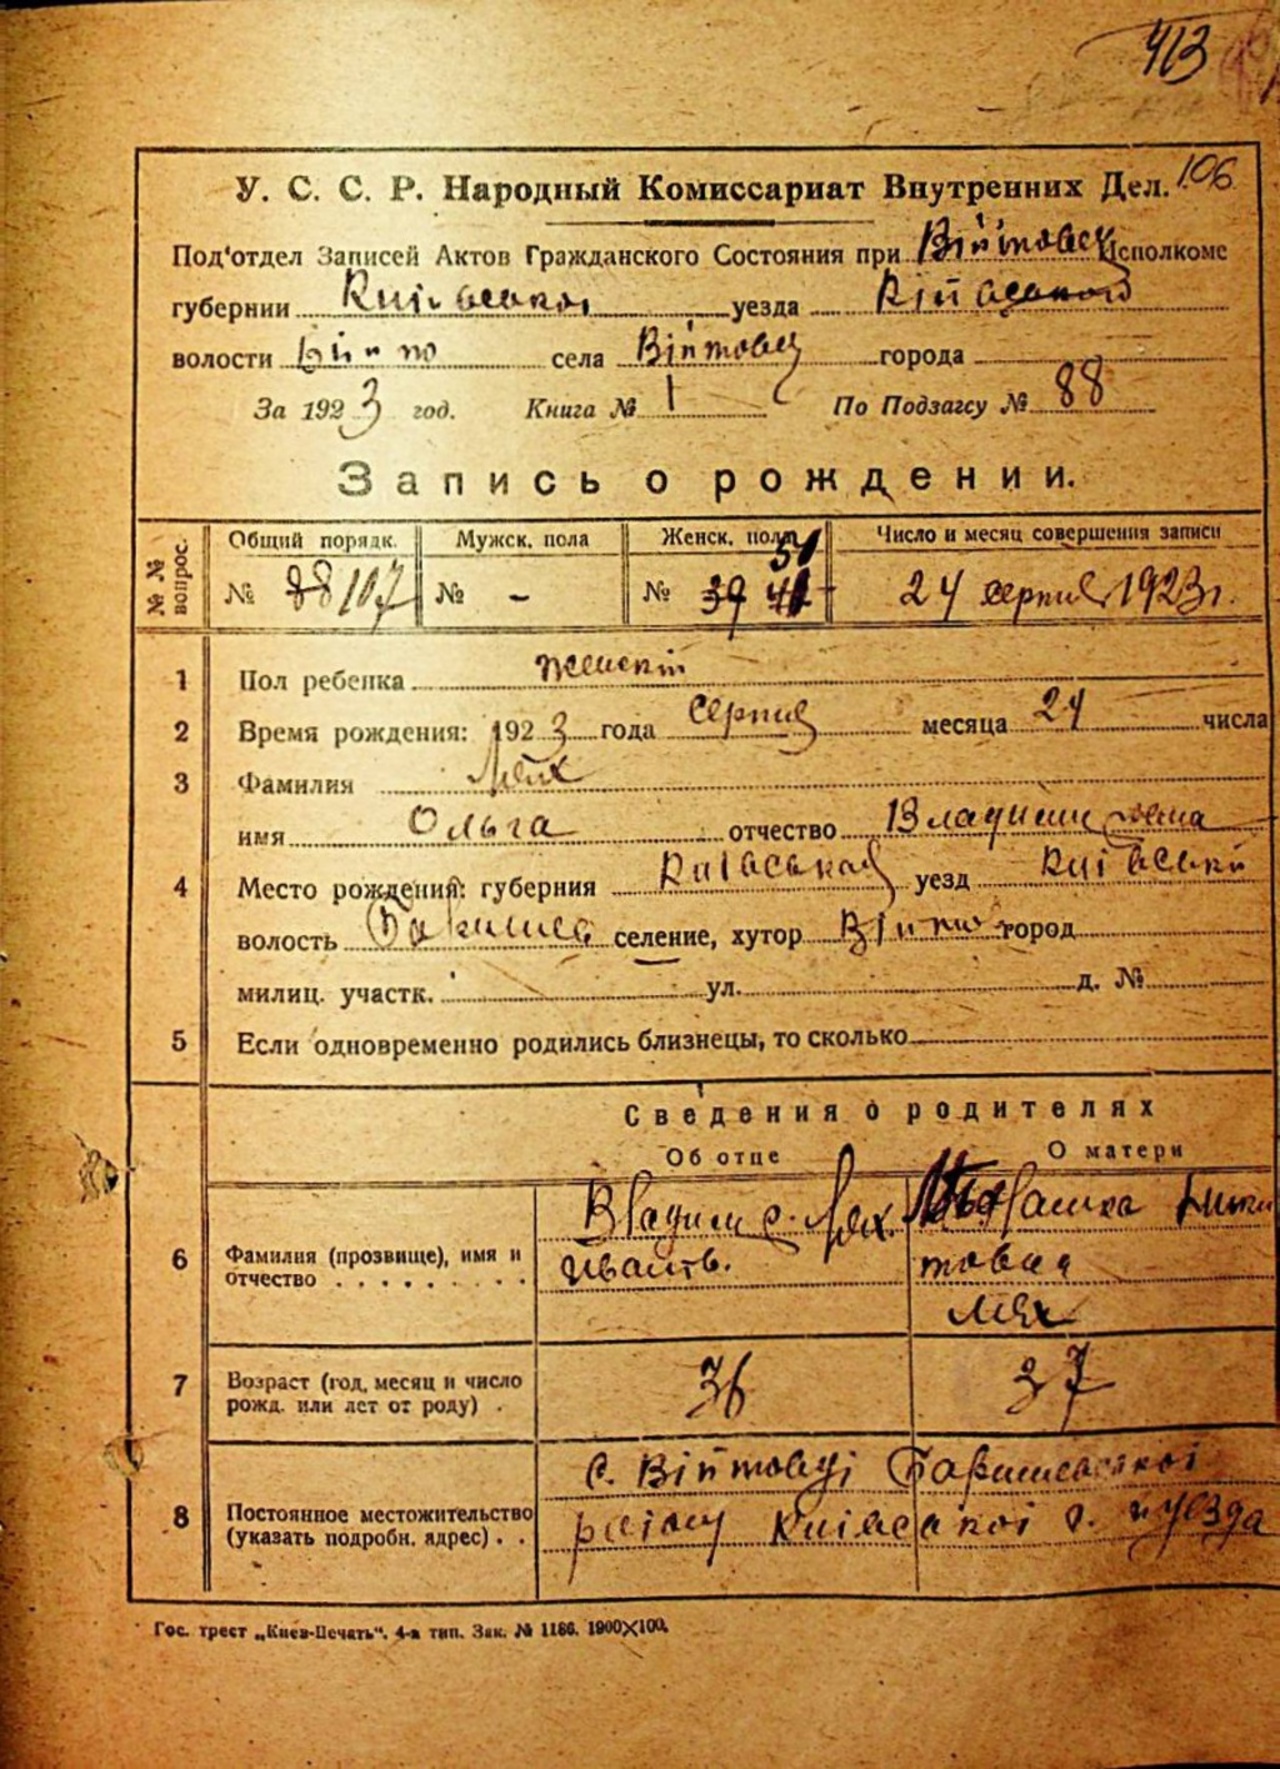 413
106
У. С. С. Р. Народный Комиссариат Внутренних Дел.
Под'отдел Записей Актов Гражданского Состояния при Війтовец Исполкоме
губернии Київської уезда Київської
волости села Війтовец города
За 1923 год. Книга № 1 По Подзагсу № 88
Запись о рождении.
№№ вопрос. Общий порядк. Мужск. пола Женск. пола Число и месяц совершения записи
№ 88 107 № - № 39 51 24 серпня 1923 г.
1 Пол ребенка женскій
2 Время рождения: 1923 года серпня месяца 24 числа
3 Фамилия Лях
имя Ольга отчество Владимировна
4 Место рождения: губерния Київська уезд Київській
волость селение, хутор город
милиц. участк. ул. д. №
5 Если одновременно родились близнецы, то сколько
Сведения о родителях
Об отце О матери
6 Фамилия (прозвище), имя и отчество
Владим. Лях
Иванов.
Лях
7 Возраст (год, месяц и число рожд. или лет от роду) 36 37
8 Постоянное местожительство (указать подробн. адрес)
с. Війтовці Баришевської
району Київської г. и уезда
Гос. трест „Киев-Печать“. 4-я тип. Зак. № 1186. 1900×100.